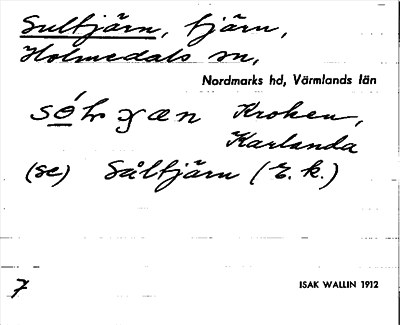 Sultjärn, tjärn,
Holmedals sn,
Nordmarks hd, Värmlands län
Kroken,
Karlanda
(se) Såltjärn (E. k.)
7
ISAK WALLIN 1912